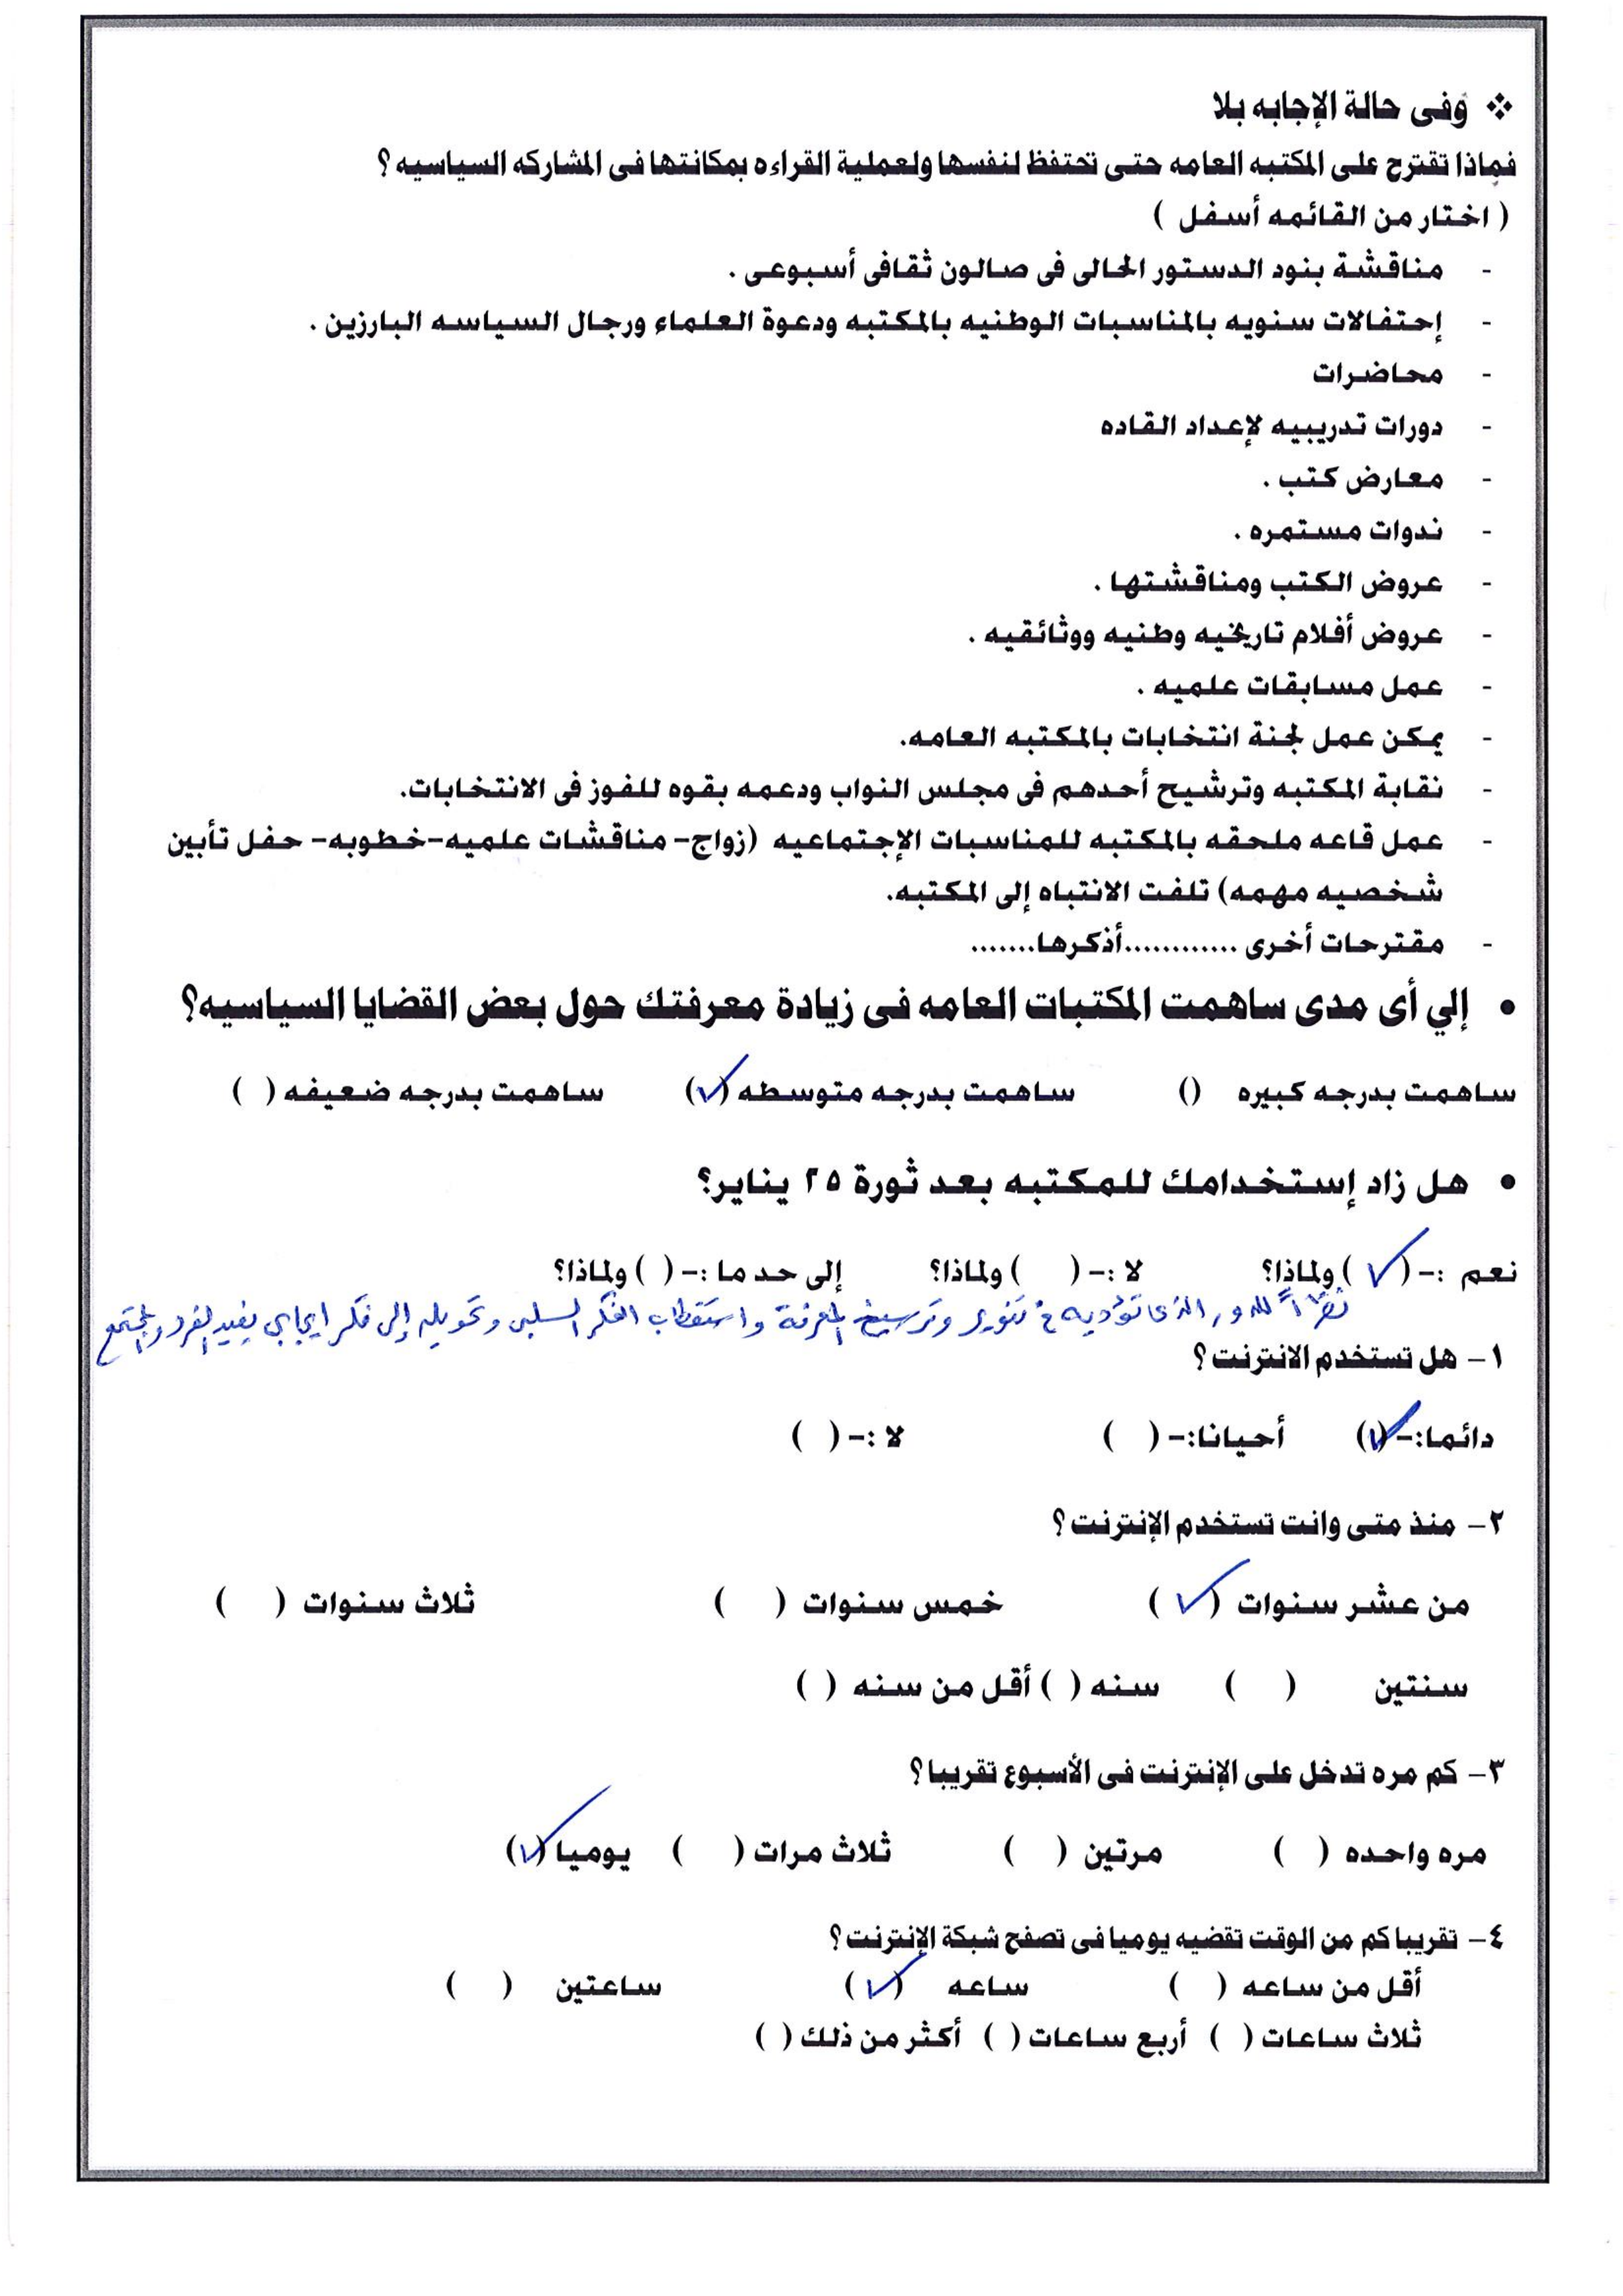 ❖ وفى حالة الإجابه بلا
فماذا تقترح على المكتبه العامه حتى تحتفظ لنفسها ولعملية القراءه بمكانتها فى المشاركه السياسيه ؟
( اختار من القائمه أسفل )
- مناقشة بنود الدستور الحالى فى صالون ثقافى أسبوعى .
- إحتفالات سنويه بالمناسبات الوطنيه بالمكتبه ودعوة العلماء ورجال السياسه البارزين .
- محاضرات
- دورات تدريبيه لإعداد القاده
- معارض كتب .
- ندوات مستمره .
- عروض الكتب ومناقشتها .
- عروض أفلام تاريخيه وطنيه ووثائقيه .
- عمل مسابقات علميه .
- يمكن عمل لجنة انتخابات بالمكتبه العامه.
- نقابة المكتبه وترشيح أحدهم فى مجلس النواب ودعمه بقوه للفوز فى الانتخابات.
- عمل قاعه ملحقه بالمكتبه للمناسبات الإجتماعيه (زواج- مناقشات علميه-خطوبه- حفل تأبين
شخصيه مهمه) تلفت الانتباه إلى المكتبه.
- مقترحات أخرى ............أذكرها.......
• إلي أى مدى ساهمت المكتبات العامه فى زيادة معرفتك حول بعض القضايا السياسيه؟
ساهمت بدرجه كبيره () ساهمت بدرجه متوسطه (✓) ساهمت بدرجه ضعيفه ( )
• هل زاد إستخدامك للمكتبه بعد ثورة ٢٥ يناير؟
نعم :- ( ✓ ) ولماذا؟ لا :- ( ) ولماذا؟ إلى حد ما :- ( ) ولماذا؟
نظراً للدور الذى تؤديه فى تنوير وترسيخ المعرفة واستقطاب الفكر السلبى وتحويله إلى فكر ايجابي يفيد الفرد والمجتمع
١- هل تستخدم الانترنت ؟
دائما:- (✓) أحيانا:- ( ) لا :- ( )
٢- منذ متى وانت تستخدم الإنترنت ؟
من عشر سنوات ( ✓ ) خمس سنوات ( ) ثلاث سنوات ( )
سنتين ( ) سنه ( ) أقل من سنه ( )
٣- كم مره تدخل على الإنترنت فى الأسبوع تقريبا ؟
مره واحده ( ) مرتين ( ) ثلاث مرات ( ) يوميا (✓)
٤- تقريبا كم من الوقت تقضيه يوميا فى تصفح شبكة الإنترنت ؟
أقل من ساعه ( ) ساعه ( ✓ ) ساعتين ( )
ثلاث ساعات ( ) أربع ساعات ( ) أكثر من ذلك ( )